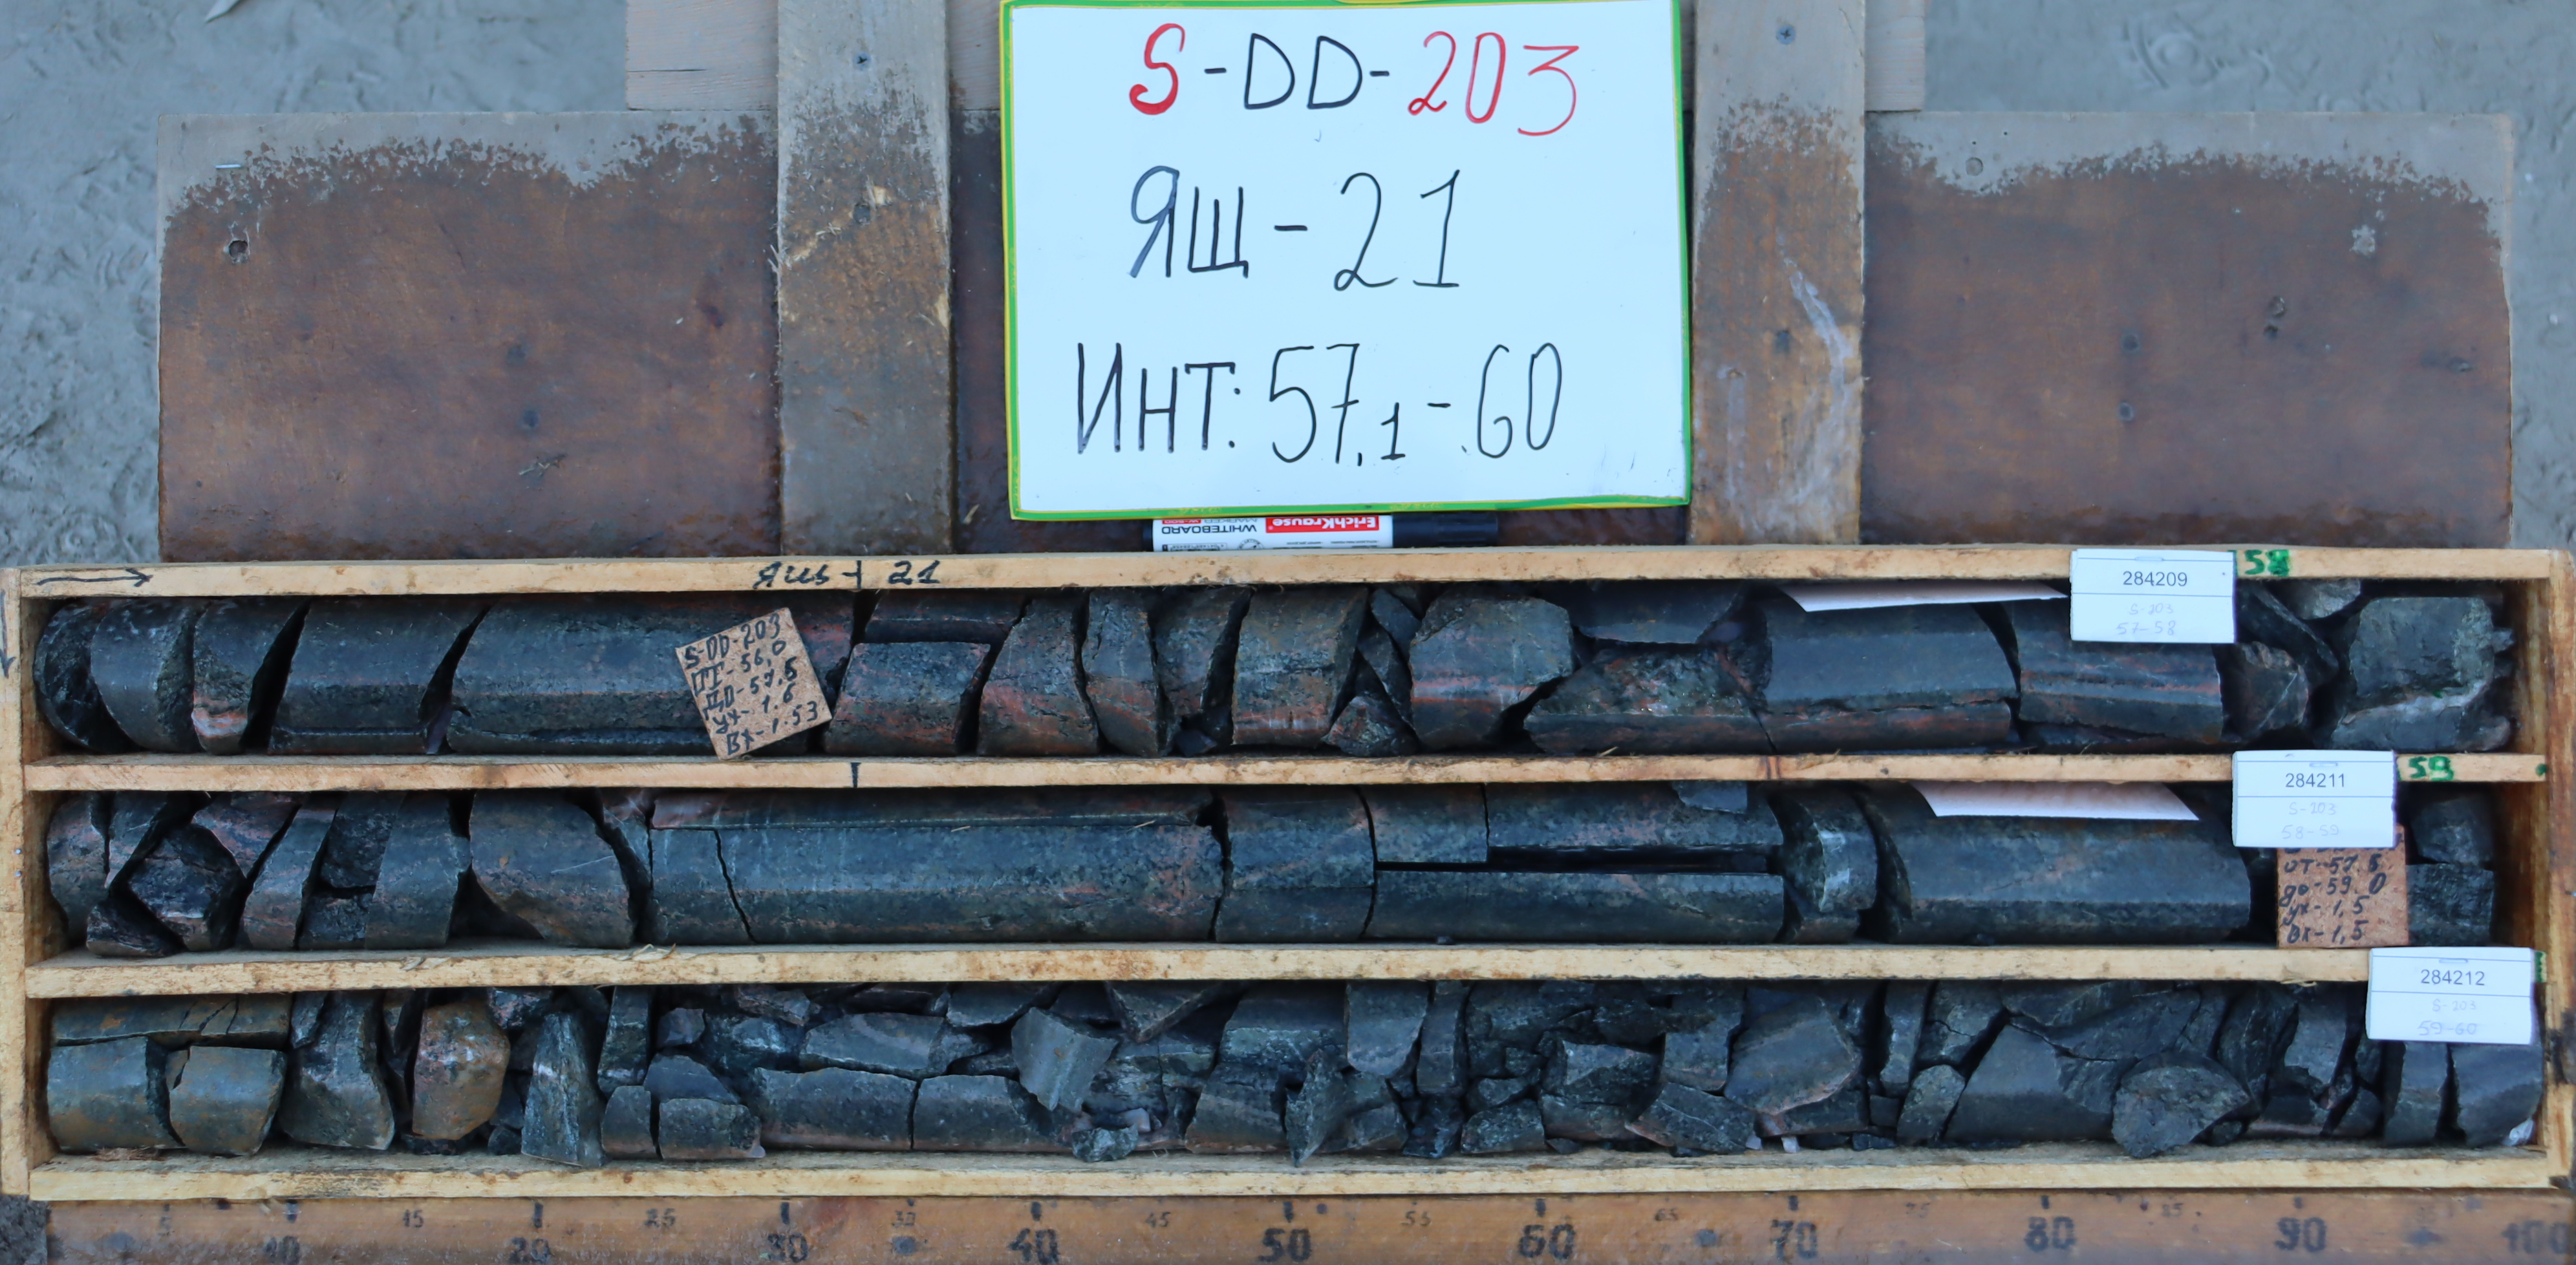 S-DD-203
ЯЩ-21
ИНТ: 57,1-60
ErichKrause
WHITEBOARD
MARKER
ЯЩ-21
284209
S-203
57-58
58
S-DD-203
ОТ-56,0
ДО-57,5
УХ-1.6
ВХ-1.53
284211
S-203
58-59
59
ОТ-57.5
до-59.0
ух-1,5
вх-1,5
284212
S-203
59-60
5 10 15 20 25 30 35 40 45 50 55 60 65 70 75 80 85 90 100